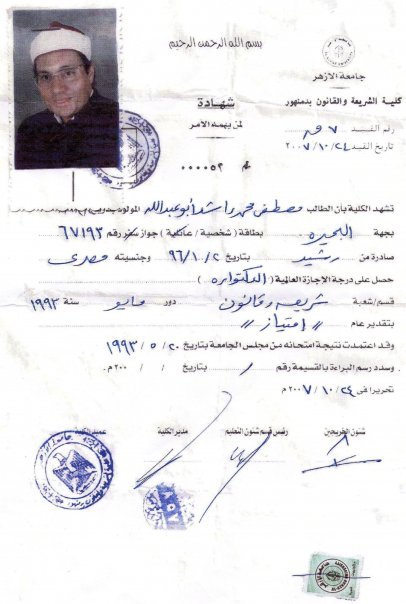 بسم الله الرحمن الرحيم
جامعة الأزهر
كلية الشريعة والقانون بدمنهور
رقم القيد ٧
تاريخ القيد ٢٠٠٧/١٠/٢٤
شهادة
لمن يهمه الأمر
٠٠٠٠٥٢
تشهد الكلية بأن الطالب مصطفى محمد راشد أبو عبد الله المولود بتاريخ
بجهة البحيره بطاقة (شخصية / عائلية) جواز سفر رقم ٦٧١٩٣
صادرة من رشيد بتاريخ ٩٦/١/٢ وجنسيته مصرى
حصل على درجة الإجازة العالمية (الدكتوراه)
قسم/شعبة شريعه وقانون دور مايو سنة ١٩٩٣
بتقدير عام "امتياز"
وقد اعتمدت نتيجة امتحانه من مجلس الجامعة بتاريخ ١٩٩٣/٥/٢٠
وسدد رسم البراءة بالقسيمة رقم / بتاريخ / / ٢٠٠م
تحريرا فى ٢٠٠٧/١٠/٢٤م
شئون الخريجين رئيس قسم شئون التعليم مدير الكلية عميد الكلية